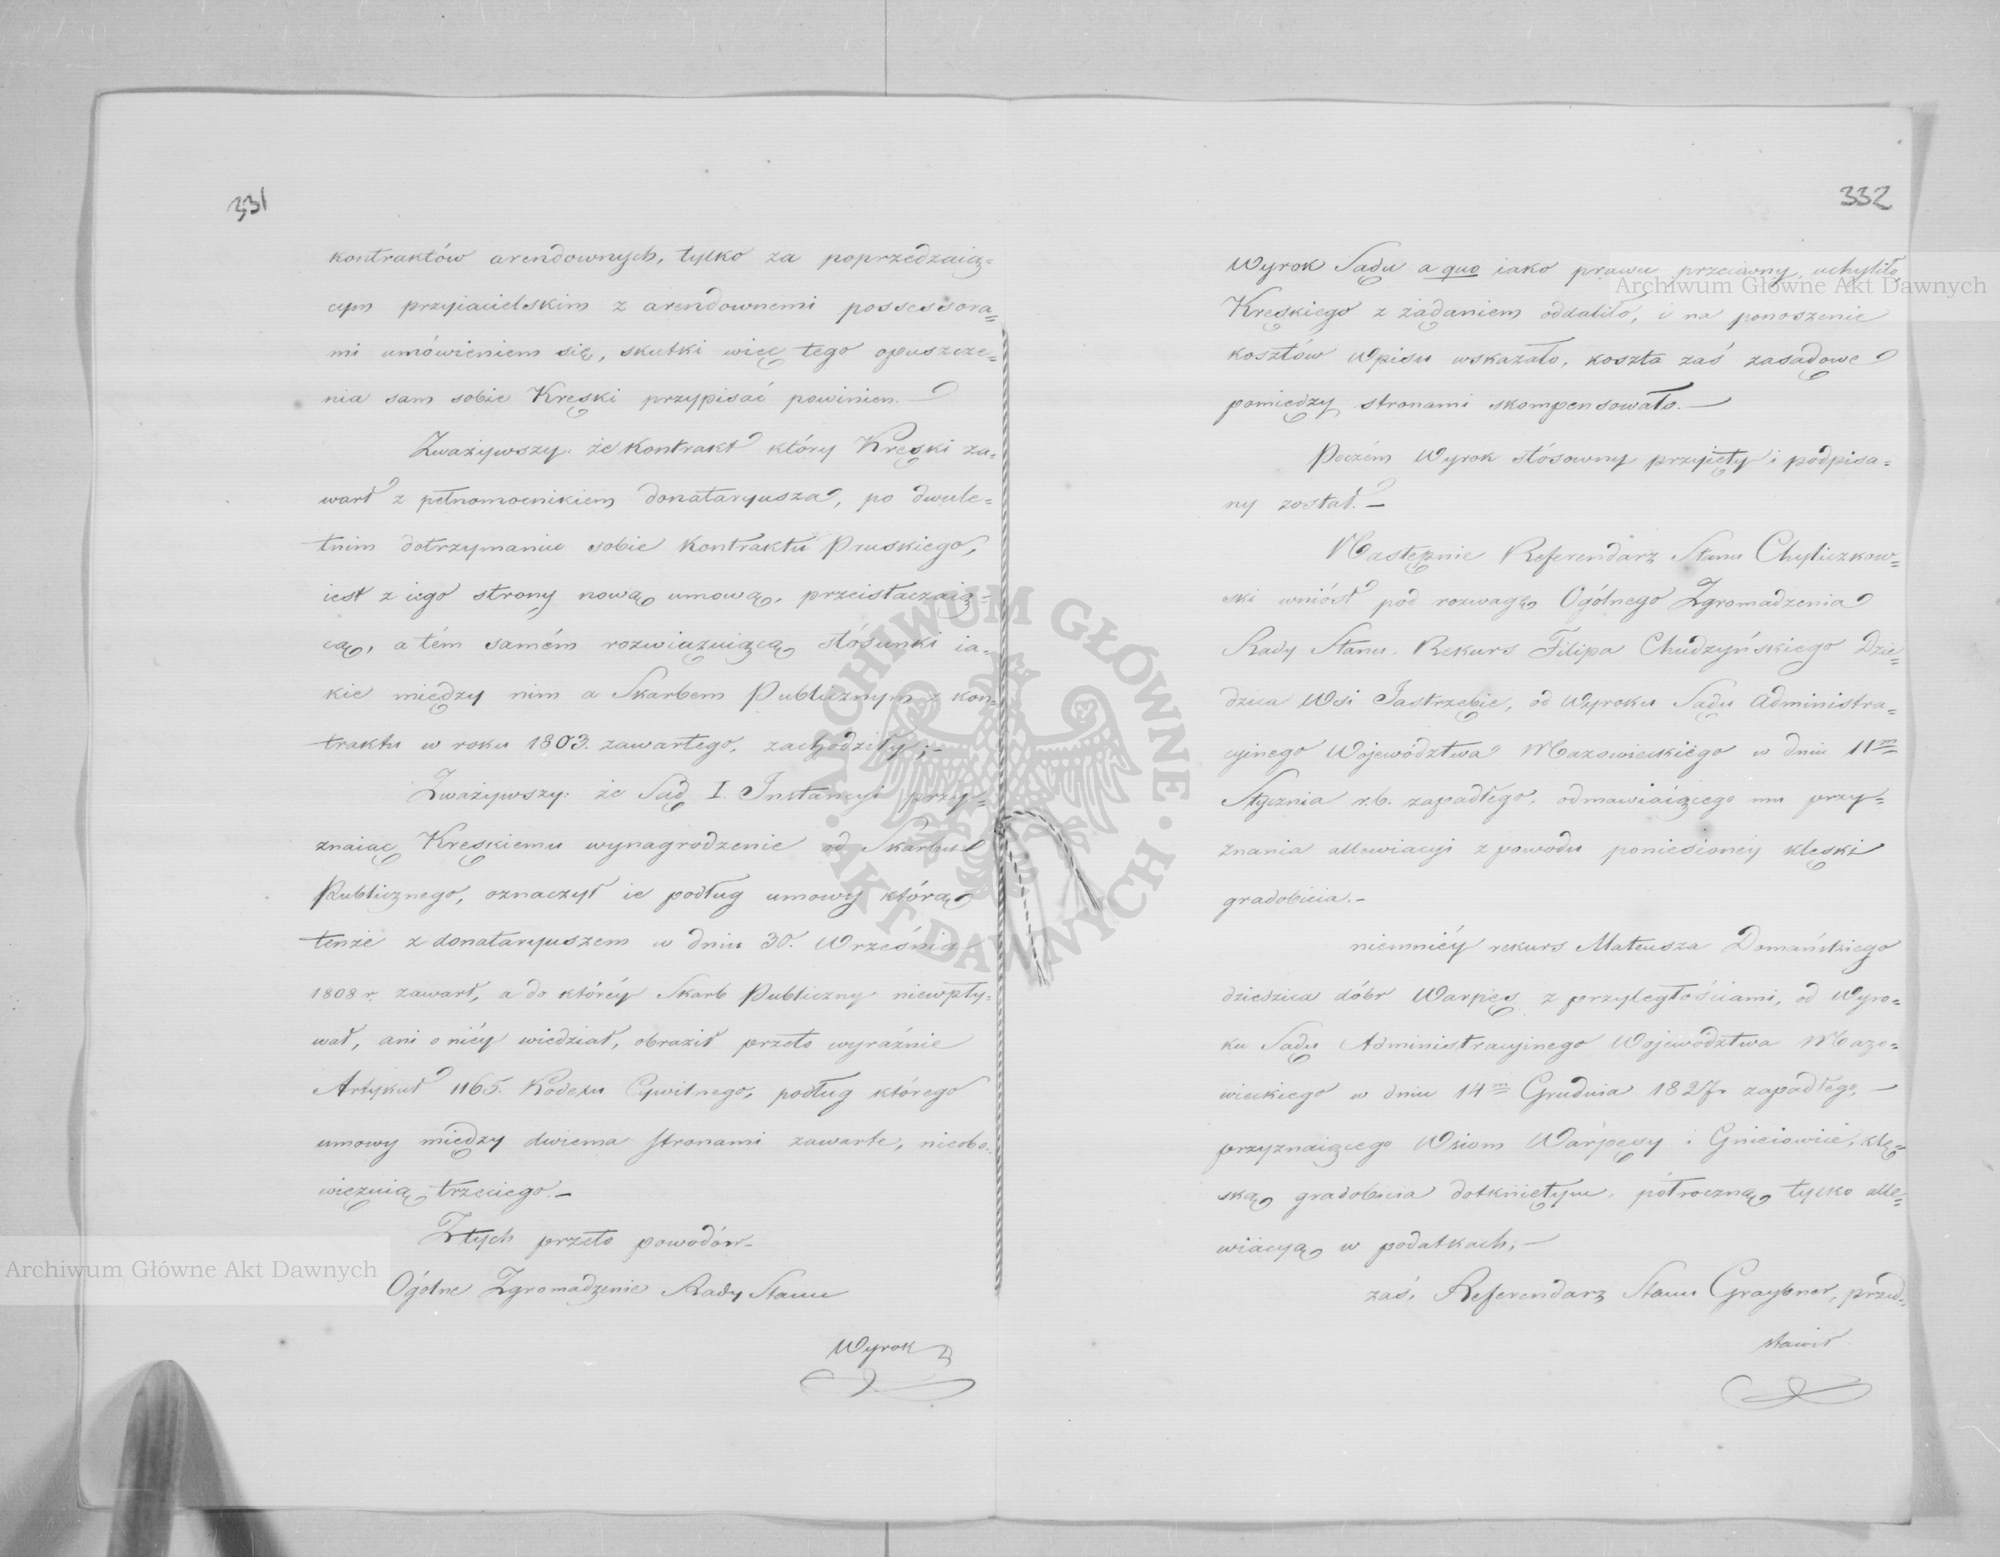 331
kontraktów arendownych, tylko za poprzedzaią=
cym przyiacielskim z arendownemi possessora=
mi umówieniem się, skutki więc tego opuszcze=
nia sam sobie Kręski przypisać powinien.—
Zważywszy: że kontrakt który Kręski za=
warł z pełnomocnikiem donataryusza, po dwule=
tnim dotrzymaniu sobie kontraktu Pruskiego,
iest z iego strony nową umową, przeistaczaią=
cą, a tém samém rozwiązuiącą stósunki ia=
kie między nim a Skarbem Publicznym z kon=
traktu w roku 1803. zawartego, zachodziły;—
Zważywszy: że Sąd I. Instancyi przy=
znaiąc Kręskiemu wynagrodzenie od Skarbu
Publicznego, oznaczył ie podług umowy którą
tenże z donataryuszem w dniu 30. Września
1808 r. zawarł, a do któréy Skarb Publiczny niewpły=
wał, ani o niéy wiedział, obraził przeto wyraźnie
Artykuł 1165. Kodexu Cywilnego, podług którego
umowy między dwiema stronami zawarte, nieobo=
wiązuią trzeciego.—
Z tych przeto powodów—
Ogólne Zgromadzenie Rady Stanu
Wyrok
332
Wyrok Sądu a quo iako prawu przeciwny uchyliło,
Kręskiego z żądaniem oddaliło, i na ponoszenie
kosztów wpisu wskazało, koszta zaś zasądowe
pomiędzy stronami skompensowało.—
Poczém Wyrok stósowny przyięty i podpisa=
ny został.—
Następnie Referendarz Stanu Chyliczkow=
ski wniósł pod rozwagę Ogólnego Zgromadzenia
Rady Stanu. Rekurs Filipa Chudzyńskiego Dzie=
dzica Wsi Jastrzębie, od Wyroku Sądu Administra=
cyjnego Województwa Mazowieckiego w dniu 11m
Stycznia r. b. zapadłego, odmawiaiącego mu przy=
znania allewiacyi z powodu poniesionéy klęski
gradobicia.—
niemniéy rekurs Mateusza Domańskiego
dziedzica dóbr Warpęs z przyległościami, od Wyro=
ku Sądu Administracyinego Województwa Mazo=
wieckiego w dniu 14m Grudnia 1827 r. zapadłego,—
przyznaiącego Wsiom Warpęsy i Gnieciowice, klę=
ską gradobicia dotkniętym, półroczną tylko alle=
wiacyą w podatkach;—
zaś, Referendarz Stanu Graybner, przed=
stawił
Archiwum Główne Akt Dawnych
Archiwum Główne Akt Dawnych
ARCHIWUM GŁÓWNE · AKT DAWNYCH ·